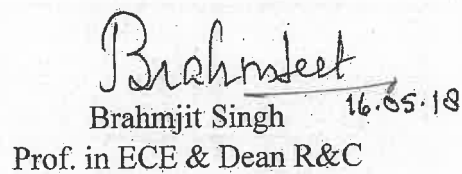 Brahmjeet
Brahmjit Singh 16.05.18
Prof. in ECE & Dean R&C